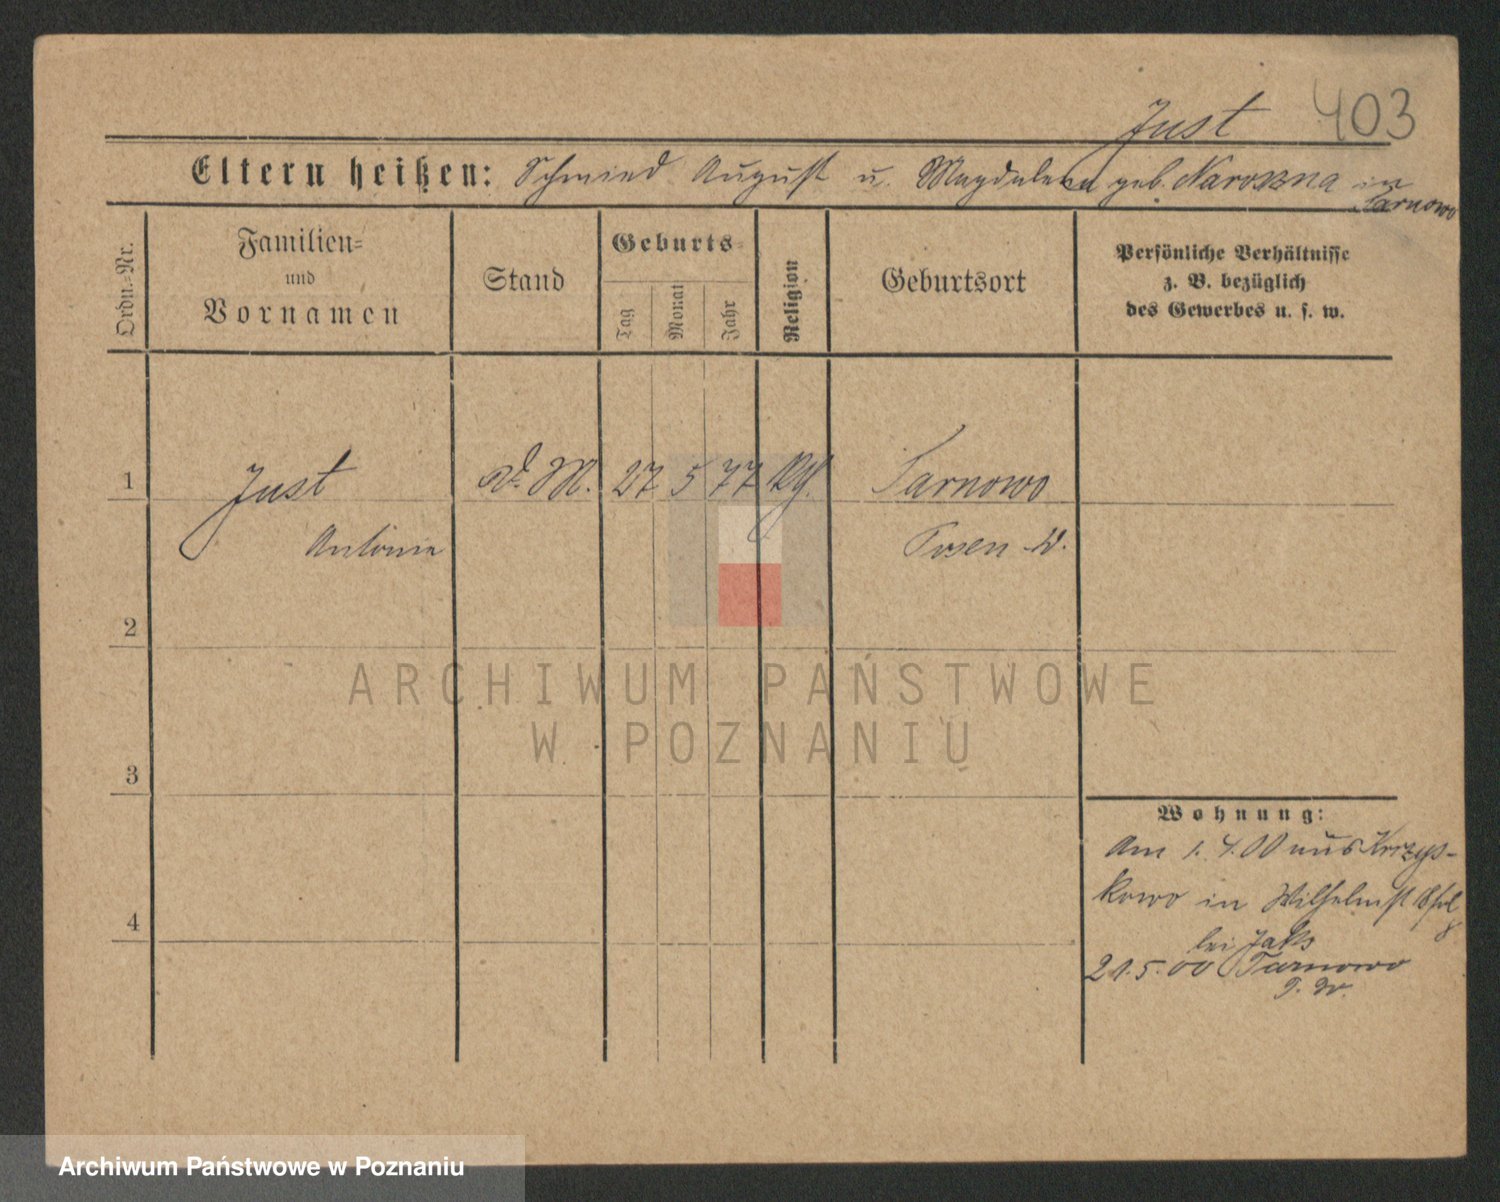 Just 403
Eltern heißen: Schmied August u. Magdalena geb. Narozna in
Tarnowo
Ordn.-Nr.
Familien-
und
Vornamen
Stand
Geburts-
Tag
Monat
Jahr
Religion
Geburtsort
Persönliche Verhältnisse
z. B. bezüglich
des Gewerbes u. s. w.
1 Just d. M. 27 5 77 Kth. Tarnowo
Antonie Posen W.
2
3
4
Wohnung:
Am 1. 4. 00 aus Krzys-
kowo in Wilhelmst
bei Jaks
21.5.00 Tarnowo
P. W.
ARCHIWUM PAŃSTWOWE
W POZNANIU
Archiwum Państwowe w Poznaniu